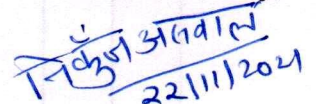 निकुँज अग्रवाल
22/11/2021